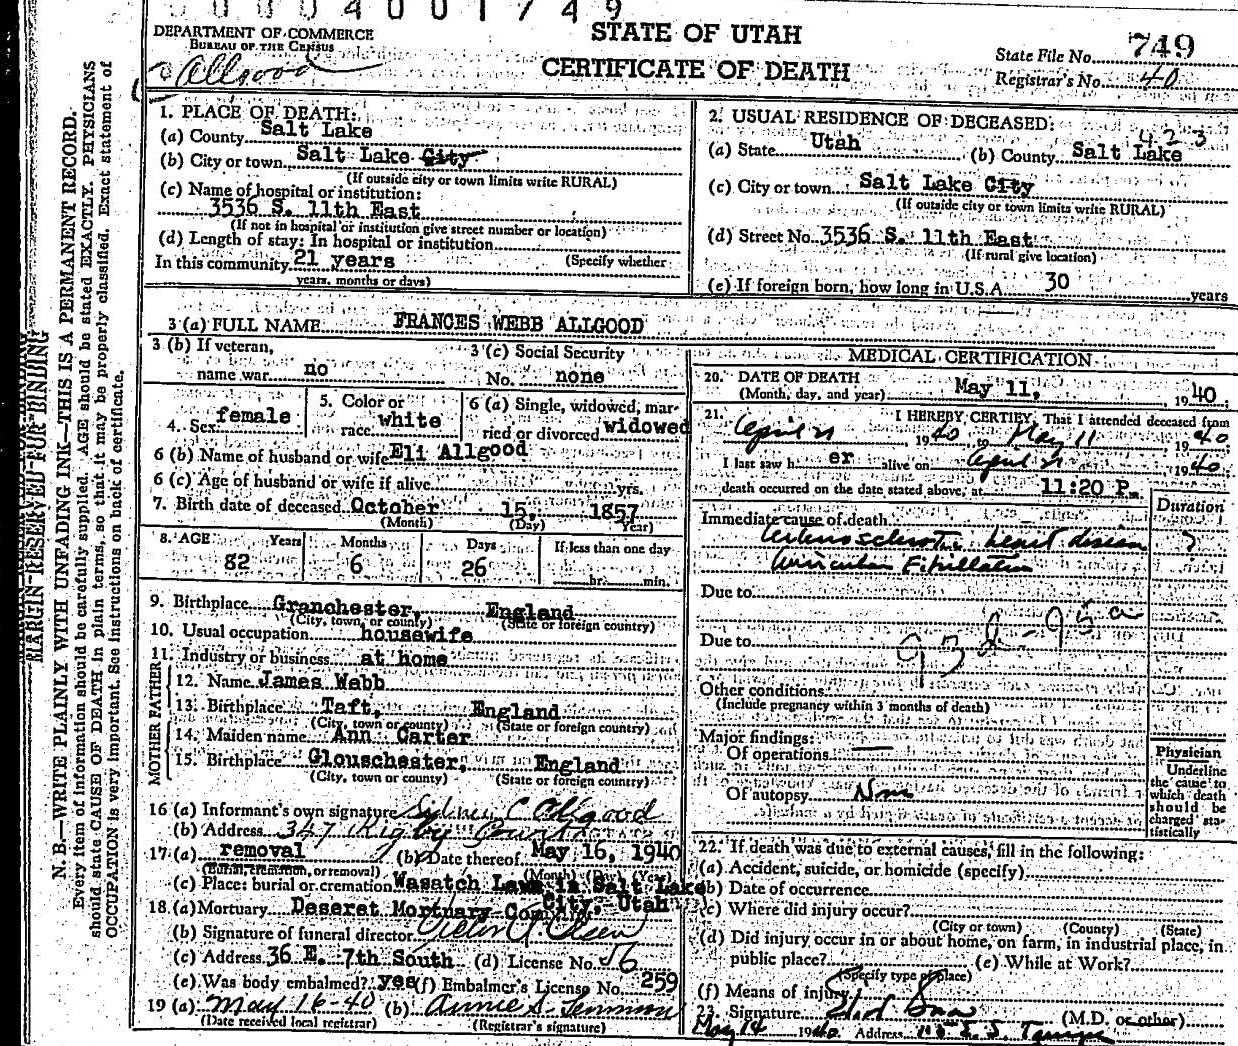 0004001749
DEPARTMENT OF COMMERCE
BUREAU OF THE CENSUS
Allgood
STATE OF UTAH
CERTIFICATE OF DEATH
State File No. 749
Registrar's No. 40
MARGIN RESERVED FOR BINDING
N. B.—WRITE PLAINLY WITH UNFADING INK—THIS IS A PERMANENT RECORD.
Every item of information should be carefully supplied. AGE should be stated EXACTLY. PHYSICIANS
should state CAUSE OF DEATH in plain terms, so that it may be properly classified. Exact statement of
OCCUPATION is very important. See instructions on back of certificate.
1. PLACE OF DEATH:
(a) County Salt Lake
(b) City or town Salt Lake City
(If outside city or town limits write RURAL)
(c) Name of hospital or institution:
3536 S. 11th East
(If not in hospital or institution give street number or location)
(d) Length of stay: In hospital or institution
In this community 21 years (Specify whether
years, months or days)
2. USUAL RESIDENCE OF DECEASED:
423
(a) State Utah (b) County Salt Lake
(c) City or town Salt Lake City
(If outside city or town limits write RURAL)
(d) Street No. 3536 S. 11th East
(If rural give location)
(e) If foreign born, how long in U.S.A. 30 years
3 (a) FULL NAME FRANCES WEBB ALLGOOD
3 (b) If veteran,
name war no
3 (c) Social Security
No. none
4. Sex female
5. Color or
race white
6 (a) Single, widowed, mar-
ried or divorced widowed
6 (b) Name of husband or wife Eli Allgood
6 (c) Age of husband or wife if alive yrs.
7. Birth date of deceased October 15, 1857
(Month) (Day) (Year)
8. AGE Years Months Days If less than one day
82 6 26 hr. min.
9. Birthplace Granchester, England
(City, town, or county) (State or foreign country)
10. Usual occupation housewife
11. Industry or business at home
FATHER
12. Name James Webb
13. Birthplace Taft, England
(City, town or county) (State or foreign country)
MOTHER
14. Maiden name Ann Carter
15. Birthplace Glouschester, England
(City, town or county) (State or foreign country)
16 (a) Informant's own signature Sydney C Allgood
(b) Address 347 Rigby Court
17 (a) removal (b) Date thereof May 16, 1940
(Burial, cremation, or removal) (Month) (Day) (Year)
(c) Place: burial or cremation Wasatch Lawn in Salt Lake
City, Utah
18. (a) Mortuary Deseret Mortuary Company
(b) Signature of funeral director Olsen
(c) Address 36 E. 7th South (d) License No. 56
(e) Was body embalmed? yes (f) Embalmer's License No. 259
19 (a) May 16-40 (b) Annie S.
(Date received local registrar) (Registrar's signature)
MEDICAL CERTIFICATION
20. DATE OF DEATH
(Month, day, and year) May 11, 1940
21. I HEREBY CERTIFY, That I attended deceased from
April 21 1940 to May 11 1940
I last saw her alive on April 21 1940
death occurred on the date stated above, at 11:20 P.m.
Duration
Immediate cause of death
Arteriosclerotic heart disease ?
Auricular Fibrillation
Due to
Due to 93d - 95a
Other conditions
(Include pregnancy within 3 months of death)
Major findings:
Of operations
Of autopsy None
Physician
Underline
the cause to
which death
should be
charged sta-
tistically
22. If death was due to external causes, fill in the following:
(a) Accident, suicide, or homicide (specify)
(b) Date of occurrence
(c) Where did injury occur?
(City or town) (County) (State)
(d) Did injury occur in or about home, on farm, in industrial place, in
public place? (e) While at Work?
(Specify type of place)
(f) Means of injury
23. Signature (M.D. or other)
May 14 1940 Address